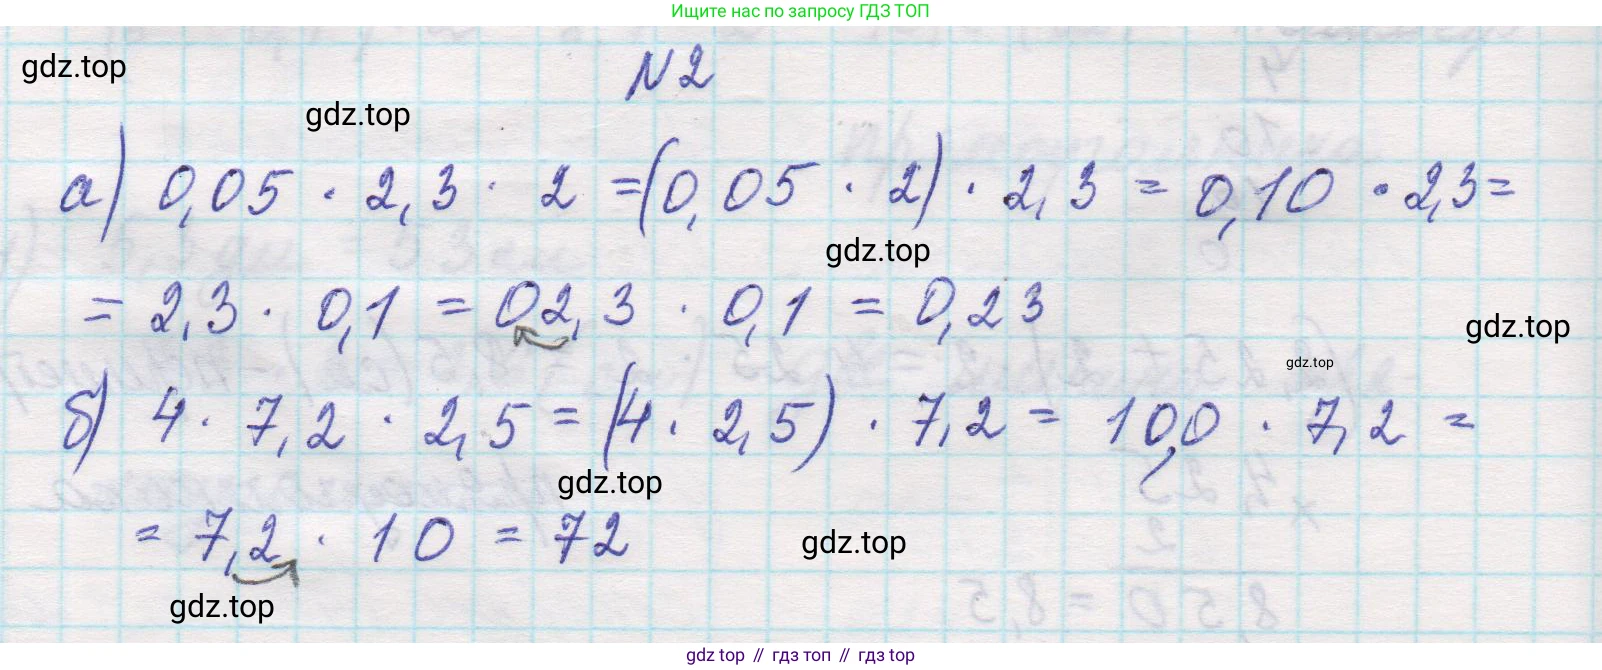 Ищите нас по запросу ГДЗ ТОП
gdz.top
N 2
gdz.top
а) 0,05 · 2,3 · 2 = (0,05 · 2) · 2,3 = 0,10 · 2,3 =
gdz.top
= 2,3 · 0,1 = 02,3 · 0,1 = 0,23
gdz.top
gdz.top
б) 4 · 7,2 · 2,5 = (4 · 2,5) · 7,2 = 10,0 · 7,2 =
gdz.top
= 7,2 · 10 = 72
gdz.top
gdz.top
gdz top // гдз топ // gdz top